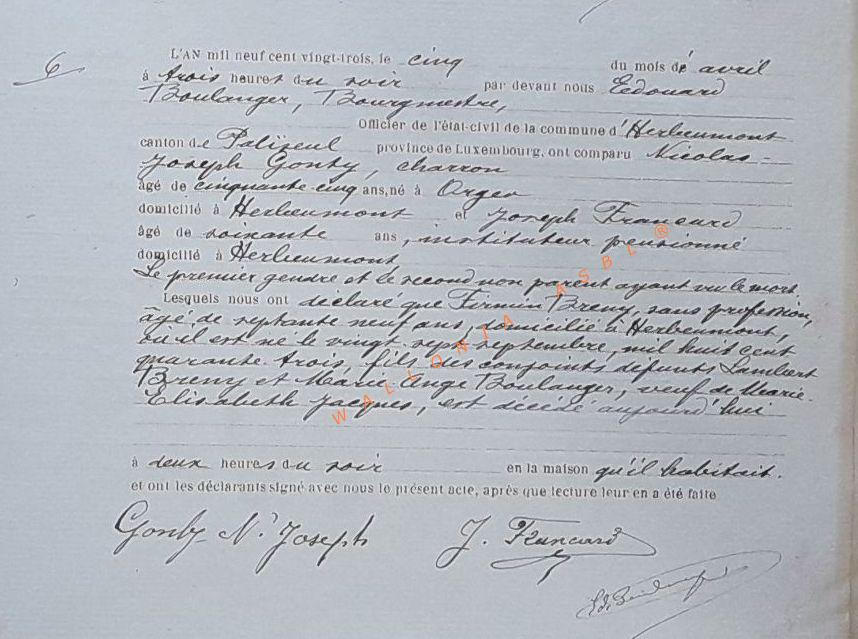 6
L'AN mil neuf cent vingt-trois, le cinq du mois de avril
à trois heures du soir par devant nous Eedouard
Boulanger, Bourgmestre,
Officier de l'état-civil de la commune d'Herbeumont
canton de Paliseul province de Luxembourg, ont comparu Nicolas-
Joseph Gonty, charron
âgé de cinquante-cinq ans, né à Orgeo
domicilié à Herbeumont et Joseph Francard
âgé de soixante ans, instituteur pensionné
domicilié à Herbeumont
Le premier gendre et le second non parent ayant vu le mort.
Lesquels nous ont déclaré que Firmin Breny, sans profession,
âgé de septante neuf ans, domicilié à Herbeumont,
où il est né le vingt sept septembre, mil huit cent
quarante trois, fils des conjoints défunts Lambert
Breny et Marie Ange Boulanger, veuf de Marie-
Elisabeth Jacques, est décédé aujourd'hui
à deux heures du soir en la maison qu'il habitait.
et ont les déclarants signé avec nous le présent acte, après que lecture leur en a été faite
Gonty N. Joseph J. Francard
Ed. Boulanger
WALLONIA ASBL ®